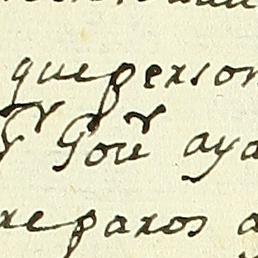 que person
Gou^r aya
reparos a